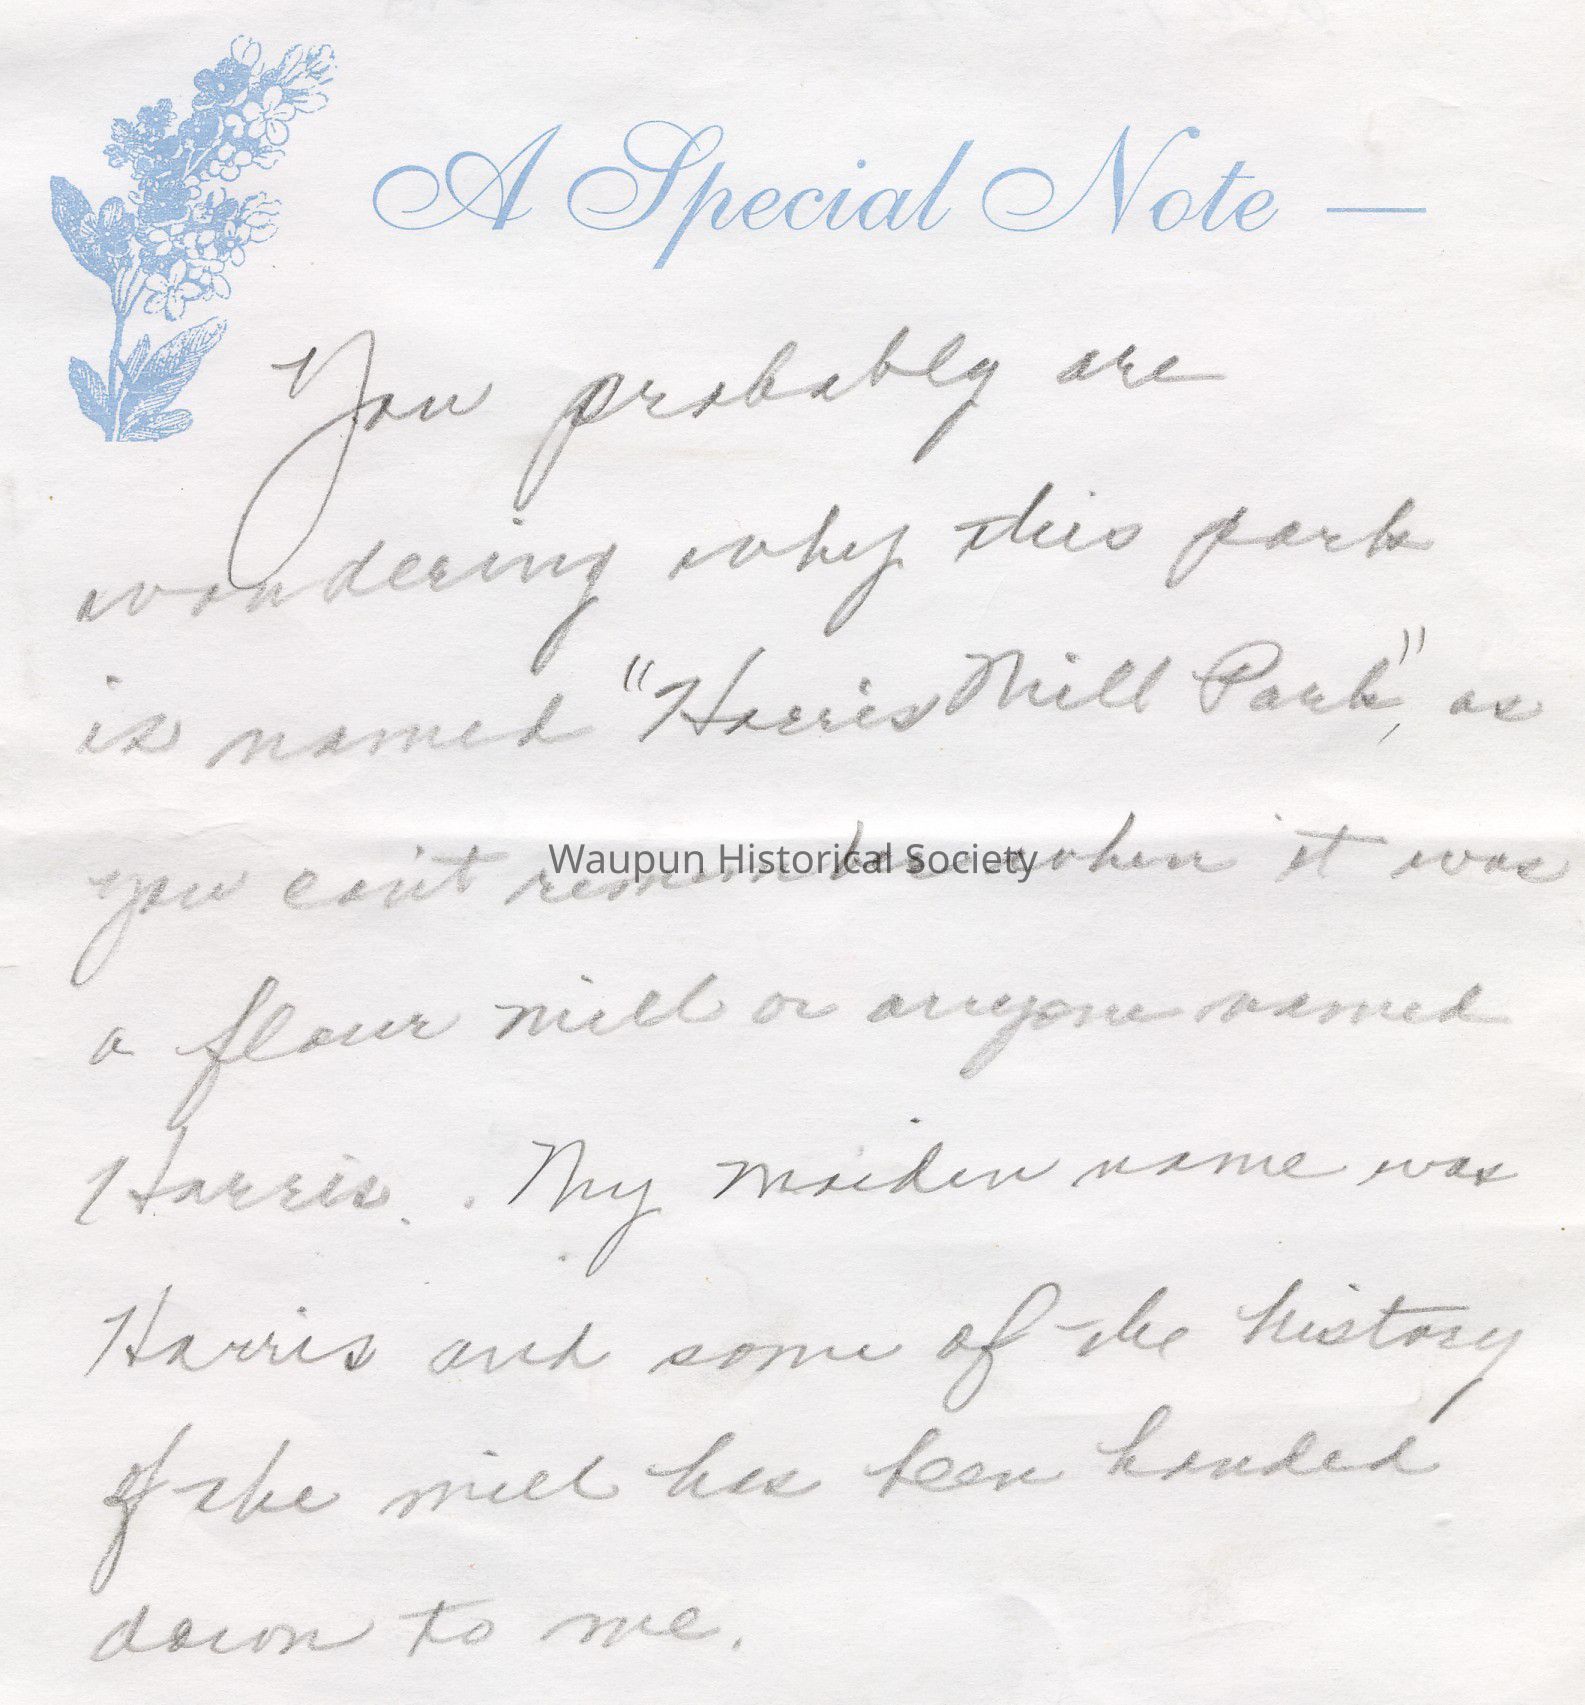 A Special Note —
You probably are
wondering why this park
is named "Harris Mill Park", as
you can't remember when it was
Waupun Historical Society
a flour mill or anyone named
Harris. My maiden name was
Harris and some of the history
of the mill has been handed
down to me.